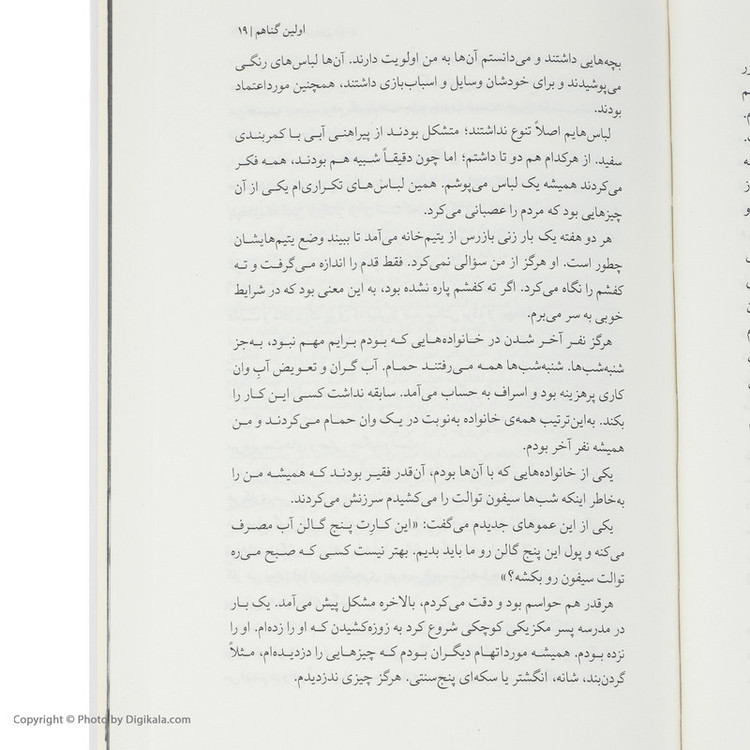 اولین گناهم | ۱۹
بچه‌هایی داشتند و می‌دانستم آن‌ها به من اولویت دارند. آن‌ها لباس‌های رنگی
می‌پوشیدند و برای خودشان وسایل و اسباب‌بازی داشتند، همچنین مورداعتماد
بودند.
لباس‌هایم اصلاً تنوع نداشتند؛ متشکل بودند از پیراهنی آبی با کمربندی
سفید. از هرکدام هم دو تا داشتم؛ اما چون دقیقاً شبیه هم بودند، همه فکر
می‌کردند همیشه یک لباس می‌پوشم. همین لباس‌های تکراری‌ام یکی از آن
چیزهایی بود که مردم را عصبانی می‌کرد.
هر دو هفته یک بار زنی بازرس از یتیم‌خانه می‌آمد تا ببیند وضع یتیم‌هایشان
چطور است. او هرگز از من سؤالی نمی‌کرد. فقط قدم را اندازه می‌گرفت و ته
کفشم را نگاه می‌کرد. اگر ته کفشم پاره نشده بود، به این معنی بود که در شرایط
خوبی به سر می‌برم.
هرگز نفر آخر شدن در خانواده‌هایی که بودم برایم مهم نبود، به‌جز
شنبه‌شب‌ها. شنبه‌شب‌ها همه می‌رفتند حمام. آب گران و تعویض آبِ وان
کاری پرهزینه بود و اسراف به حساب می‌آمد. سابقه نداشت کسی این کار را
بکند. به‌این‌ترتیب همه‌ی خانواده به‌نوبت در یک وان حمام می‌کردند و من
همیشه نفر آخر بودم.
یکی از خانواده‌هایی که با آن‌ها بودم، آن‌قدر فقیر بودند که همیشه من را
به‌خاطر اینکه شب‌ها سیفون توالت را می‌کشیدم سرزنش می‌کردند.
یکی از این عموهای جدیدم می‌گفت: «این کارِت پنج گالن آب مصرف
می‌کنه و پول این پنج گالن رو ما باید بدیم. بهتر نیست کسی که صبح می‌ره
توالت سیفون رو بکشه؟»
هرقدر هم حواسم بود و دقت می‌کردم، بالاخره مشکل پیش می‌آمد. یک بار
در مدرسه پسر مکزیکی کوچکی شروع کرد به زوزه‌کشیدن که او را زده‌ام. او را
نزده بودم. همیشه مورداتهام دیگران بودم که چیزهایی را دزدیده‌ام، مثلاً
گردن‌بند، شانه، انگشتر یا سکه‌ای پنج‌سنتی. هرگز چیزی ندزدیدم.
Copyright © Photo by Digikala.com